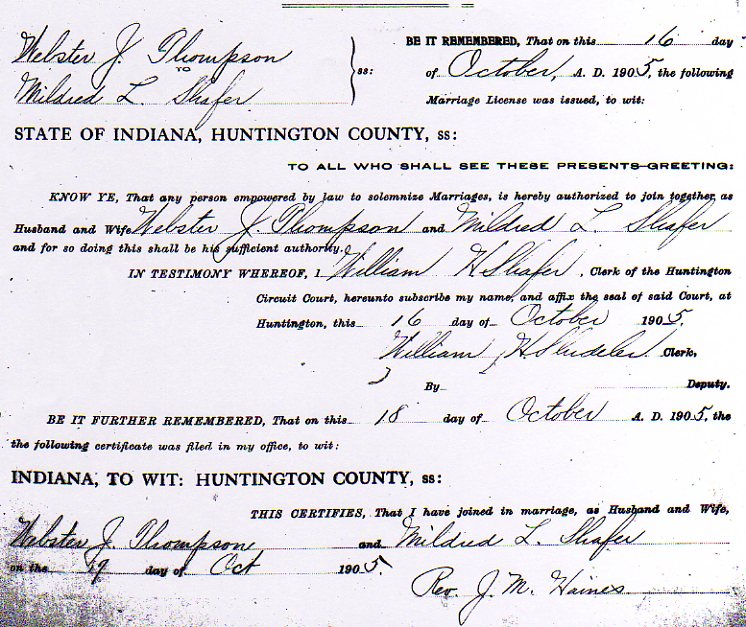 Webster J. Thompson
TO
Mildred L. Shafer
ss:
BE IT REMEMBERED, That on this 16 day
of October, A. D. 1905, the following
Marriage License was issued, to wit:
STATE OF INDIANA, HUNTINGTON COUNTY, ss:
TO ALL WHO SHALL SEE THESE PRESENTS—GREETING:
KNOW YE, That any person empowered by law to solemnize Marriages, is hereby authorized to join together, as
Husband and Wife Webster J. Thompson and Mildred L. Shafer
and for so doing this shall be his sufficient authority.
IN TESTIMONY WHEREOF, I William H Shafer, Clerk of the Huntington
Circuit Court, hereunto subscribe my name, and affix the seal of said Court, at
Huntington, this 16 day of October 1905.
William H Clerk,
By Deputy.
BE IT FURTHER REMEMBERED, That on this 18 day of October A. D. 1905, the
the following certificate was filed in my office, to wit:
INDIANA, TO WIT: HUNTINGTON COUNTY, ss:
THIS CERTIFIES, That I have joined in marriage, as Husband and Wife,
Webster J. Thompson and Mildred L. Shafer
on the day of Oct 1905.
Rev. J. M. Haines